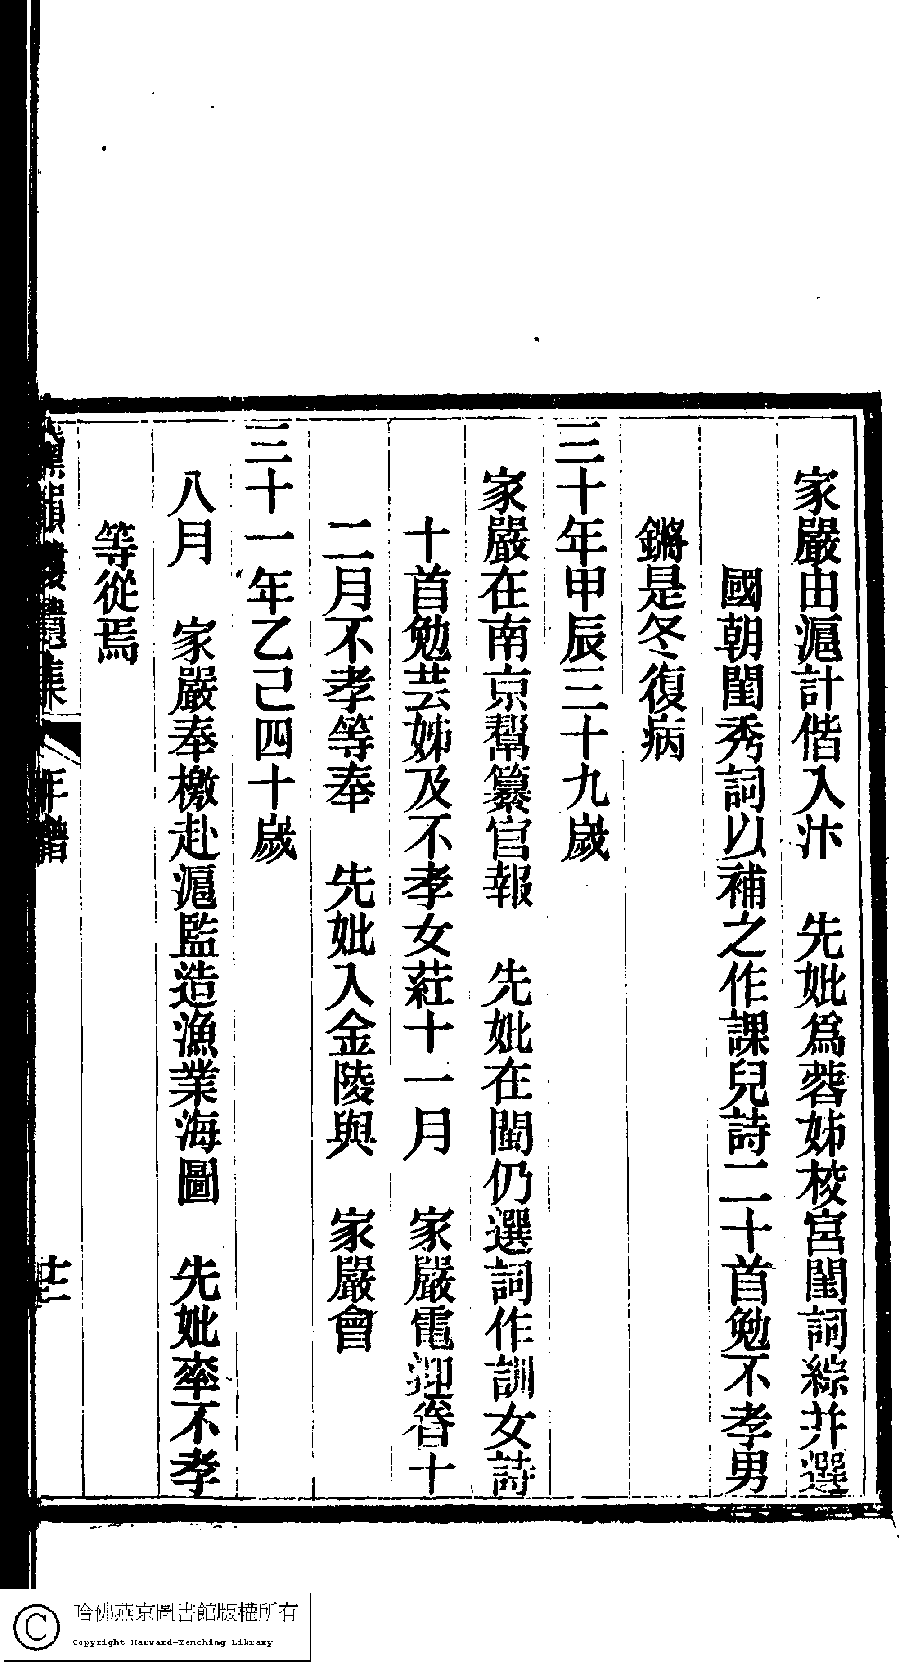 家嚴由滬計偕入汴　先妣爲蓉姊校宮閨詞綜并選
國朝閨秀詞以補之作課兒詩二十首勉不孝男
鏘是冬復病
三十年甲辰三十九歲
家嚴在南京幫纂官報　先妣在閩仍選詞作訓女詩
十首勉芸姊及不孝女葒十一月　家嚴電迎眷十
二月不孝等奉　先妣入金陵與　家嚴會
三十一年乙己四十歲
八月　家嚴奉檄赴滬監造漁業海圖　先妣率不孝
等從焉
黛韻樓遺集　年譜　廿二
哈佛燕京圖書館版權所有
Copyright Harvard-Yenching Library